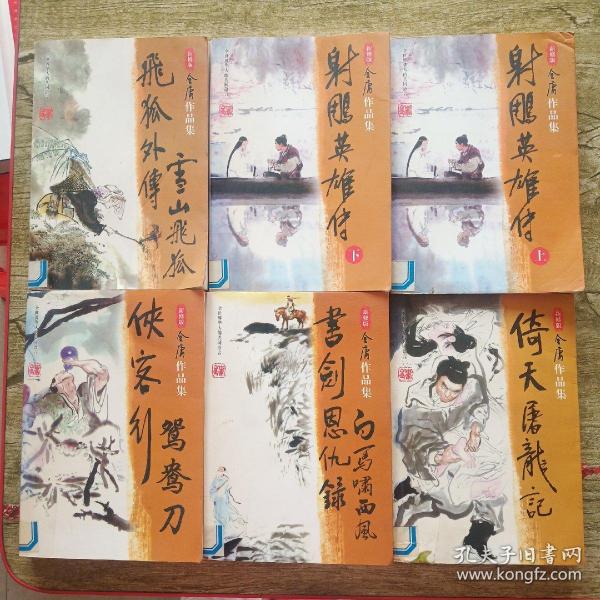 新修版
金庸作品集
飛狐外傳
雪山飛狐
新修版
金庸作品集
射鵰英雄传
下
新修版
金庸作品集
射鵰英雄传
上
新修版
金庸作品集
俠客行
鴛鴦刀
新修版
金庸作品集
書劍恩仇錄
白馬嘯西風
新修版
金庸作品集
倚天屠龍記
孔夫子旧书网
www.kongfz.com